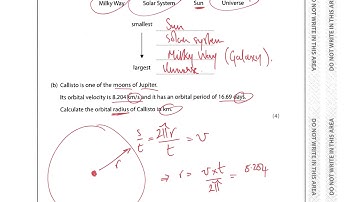 Milky Way Solar System Sun Universe
smallest Sun
Solar system
Milky Way (Galaxy).
largest Universe
(b) Callisto is one of the moons of Jupiter.
Its orbital velocity is 8.204 km/s and it has an orbital period of 16.69 days.
Calculate the orbital radius of Callisto in km.
(4)
s/t = 2πr/t = v
r
⇒ r = v×t/2π = 8.204
DO NOT WRITE IN THIS AREA
DO NOT WRITE IN THIS AREA
DO NOT WRITE IN THIS AREA
DO NOT WRITE IN THIS AREA